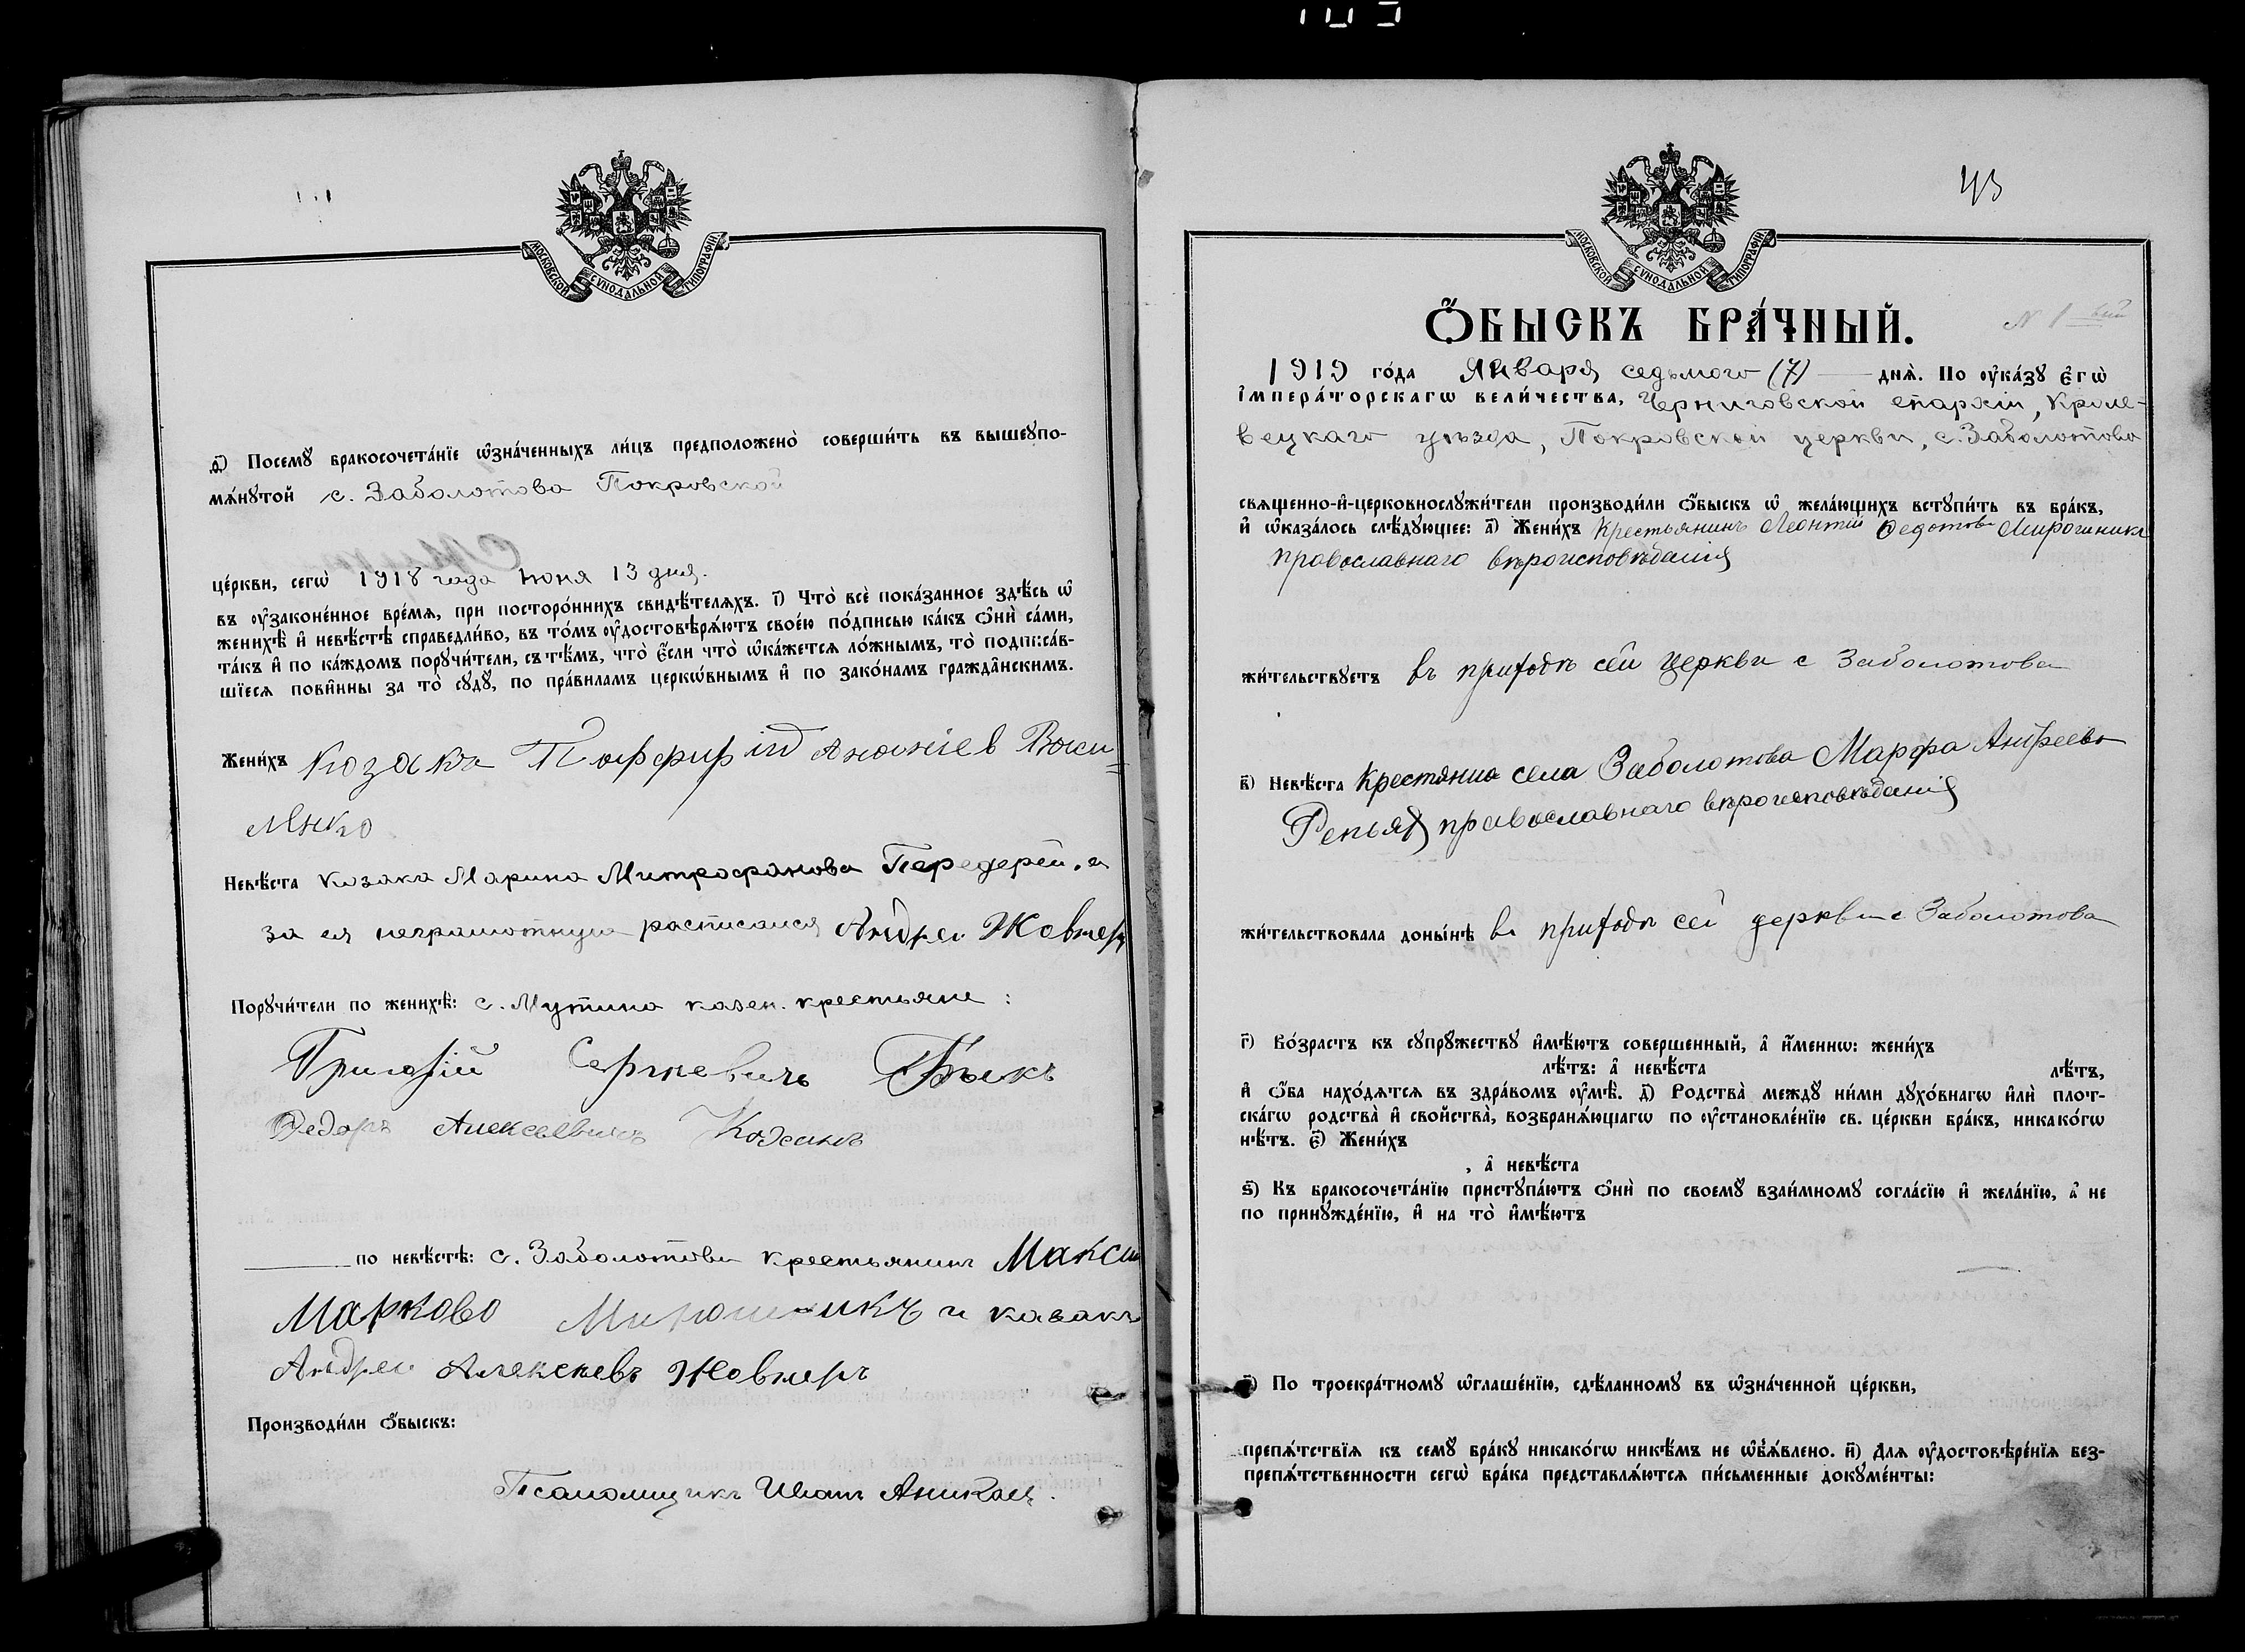 МОСКОВСКОЙ СѴНОДАЛЬНОЙ ТИПОГРАФІИ.
Ѳ҃) Посемꙋ бракосочета́нїе ѡ҆зна́ченныхъ ли́цъ предположено̀ соверши́ть въ вышеꙋпо-
мѧ́нꙋтой с. Заболотова Покровской
це́ркви, сегѡ̀ 1918 года Іюня 13 дня.
въ ᲂу҆законе́нное вре́мѧ, при посторо́ннихъ свидѣ́телѧхъ. і҃) Что̀ всѐ пока́занное здѣ́сь ѡ҆
женихѣ̀ и҆ невѣ́стѣ справедли́во, въ то́мъ ᲂу҆достовѣрѧ́ютъ свое́ю по́дписью ка́къ ѻ҆нѝ са́ми,
та́къ и҆ по ка́ждомъ порꙋчи́тели, съ тѣ́мъ, что̀ є҆́сли что̀ ѡ҆ка́жетсѧ ло́жнымъ, то̀ подписа́в-
шїесѧ пови́нны за то̀ сꙋдꙋ̀, по пра́виламъ церко́внымъ и҆ по зако́намъ гражда́нскимъ.
Жени́хъ Козакъ Порфирій Ананіев Васи
Невѣ́ста козачка Марина Митрофанова Передерей, а
за ея неграмотную расписался Андрей Жовнеръ
Порꙋчи́тели по женихѣ̀: с. Мутина казен. крестьяне:
Григорій Сергіевичъ Быкъ
Федоръ Алексеевичъ
по невѣ́стѣ: с. Заболотова крестьянинъ Макси
Марково Мирошникъ и казакъ
Андрей Алексѣевъ Жовнеръ
Производи́ли ѻ҆́быскъ:
Псаломщикъ Иванъ
43
МОСКОВСКОЙ СѴНОДАЛЬНОЙ ТИПОГРАФІИ.
Ѻ҆БЫСКЪ БРА́ЧНЫЙ.
N 1 вый
1919 го́да Января седьмого (7) днѧ̀. По ᲂу҆ка́зꙋ є҆гѡ̀
і҆мпера́торскагѡ вели́чества, Черниговской епархіи, Кроле-
вецкаго уѣзда, Покровской церкви, с. Заболотова
свѧщенно-и҆-церковнослꙋжи́тели производи́ли ѻ҆́быскъ ѡ҆ жела́ющихъ встꙋпи́ть въ бра́къ,
и҆ ѡ҆каза́лось слѣ́дꙋющее: а҃) Жени́хъ Крестьянинъ Леонтій Федотовъ Мирошникъ
православнаго вѣроисповѣданія
жи́тельствꙋетъ въ приходѣ сей церкви с Заболотова
в҃) Невѣ́ста Крестянка села Заболотова Марфа Андреева
Репьях православнаго вѣроисповѣданія
жи́тельствовала доны́нѣ въ приходѣ сей церкви с Заболотова
г҃) Во́зрастъ къ сꙋпрꙋ́жествꙋ и҆мѣ́ютъ совершенный, а҆ и҆́меннѡ: жени́хъ
лѣ́тъ: а҆ невѣ́ста лѣ́тъ,
и҆ ѻ҆́ба нахо́дѧтсѧ въ здра́вомъ ᲂу҆мѣ̀. д҃) Родства̀ междꙋ̀ ни́ми дꙋхо́внагѡ и҆лѝ плот-
ска́гѡ родства̀ и҆ сво́йства, возбранѧ́ющагѡ по ᲂу҆становле́нїю св. це́ркви бра́къ, никако́гѡ
нѣ́тъ. є҃) Жени́хъ
, а҆ невѣ́ста
ѕ҃) Къ бракосочета́нїю пристꙋпа́ютъ ѻ҆нѝ по своемꙋ̀ взаи́мномꙋ согла́сїю и҆ жела́нїю, а҆ не
по принꙋжде́нїю, и҆ на то̀ и҆мѣ́ютъ
з҃) По троекра́тномꙋ ѡ҆глаше́нїю, сдѣ́ланномꙋ въ ѡ҆зна́ченной це́ркви,
препѧ́тствїѧ къ семꙋ̀ бра́кꙋ никако́гѡ никѣ́мъ не ѡ҆б̾ѧ́влено. и҃) Длѧ ᲂу҆достовѣре́нїѧ без-
препѧ́тственности сегѡ̀ бра́ка представлѧ́ютсѧ пи́сьменные докꙋме́нты: